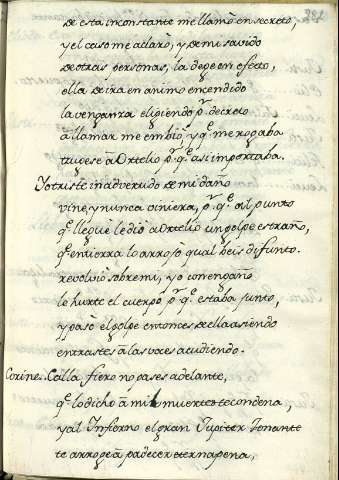 de esta inconstante me llamó en secreto,
y el caso me aclaró, y de mi savido
de otras personas, la dege en efeto,
ella de ira en animo encendido
la venganza eligiendo pr. decreto
a llamar me embió, y qe. me rogaba
trugese à Ortelio pr. qe. asi importaba.
Yo triste inadvertido de mi daño
vine, y nunca viniera, pr. qe. al punto
qe. llegue le dió à Ortelio un golpe estraño,
qe. en tierra lo arrojó qual beis difunto.
revolvió sobre mi, y yo con engaño
le hurte el cuerpo pr. qe. estaba junto,
y pasó el golpe entonces de ella asiendo
entrastes à las voces acudiendo.
Corine. Calla, fiero no pases adelante,
qe. lo dicho à mil muertes te condena,
y al Infierno el gran Jupiter Tonante
te arroge à padecer eterna pena,